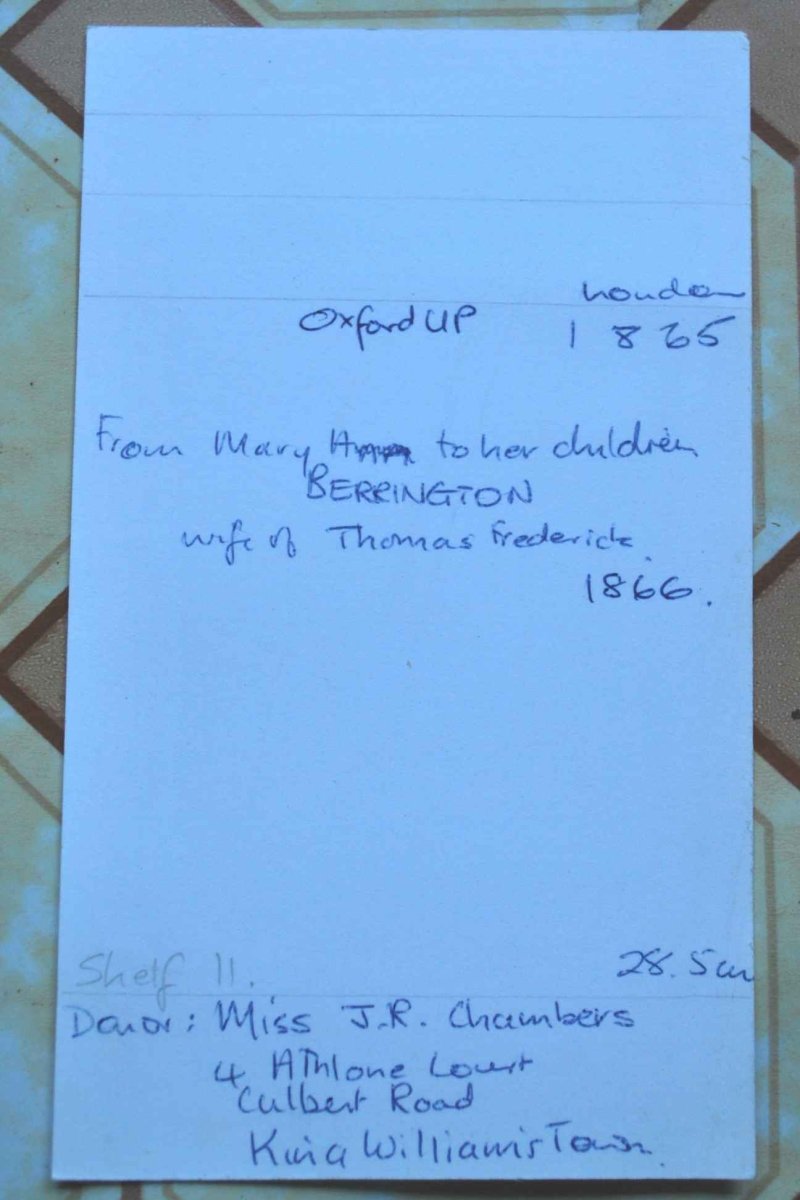 London
Oxford UP 1865
From Mary to her children
BERRINGTON
wife of Thomas Frederick.
1866.
Shelf 11.
28.5cm
Donor: Miss J.R. Chambers
4 Athlone Court
Culbert Road
King William's Town.